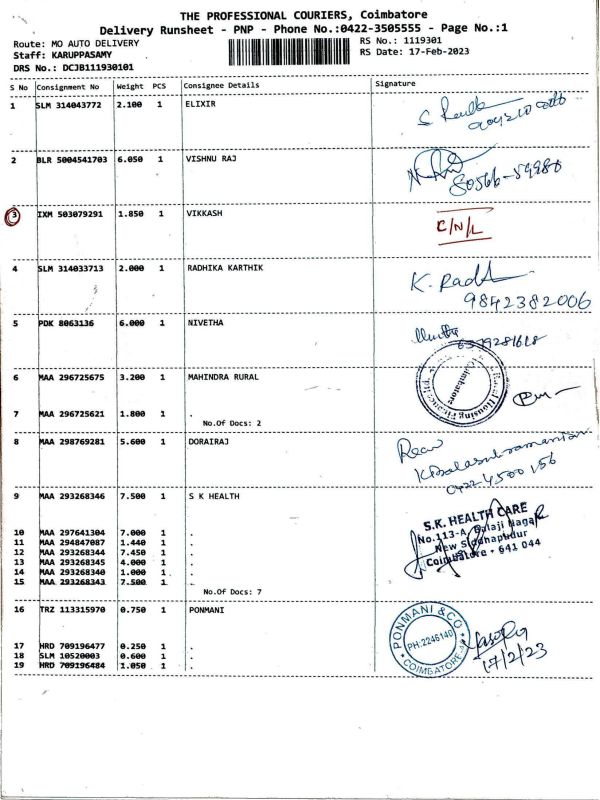 THE PROFESSIONAL COURIERS, Coimbatore
Delivery Runsheet - PNP - Phone No.:0422-3505555 - Page No.:1
Route: MO AUTO DELIVERY
RS No.: 1119301
Staff: KARUPPASAMY
RS Date: 17-Feb-2023
DRS No.: DCJB111930101
S No Consignment No Weight PCS Consignee Details Signature
1 SLM 314043772 2.100 1 ELIXIR
2 BLR 5004541703 6.050 1 VISHNU RAJ
80566-59980
3 IXM 503079291 1.850 1 VIKKASH C/N/L
4 SLM 314033713 2.000 1 RADHIKA KARTHIK K. Radh
9842382006
5 PDK 8063136 6.000 1 NIVETHA
6 MAA 296725675 3.200 1 MAHINDRA RURAL
Rural Housing Finance Ltd
Coimbatore
7 MAA 296725621 1.800 1 .
No.Of Docs: 2
8 MAA 298769281 5.600 1 DORAIRAJ
K Balasubramanian
9 MAA 293268346 7.500 1 S K HEALTH
S.K. HEALTH CARE
No.113-A, Balaji Nagar
New Siddhapudur
Coimbatore - 641 044
10 MAA 297641304 7.000 1 .
11 MAA 294847087 1.440 1 .
12 MAA 293268344 7.450 1 .
13 MAA 293268345 4.000 1 .
14 MAA 293268340 1.000 1 .
15 MAA 293268343 7.500 1 .
No.Of Docs: 7
16 TRZ 113315970 0.750 1 PONMANI
PONMANI & CO
PH:2246140
COIMBATORE
17/2/23
17 HRD 709196477 0.250 1 .
18 SLM 10520003 0.600 1 .
19 HRD 709196484 1.050 1 .